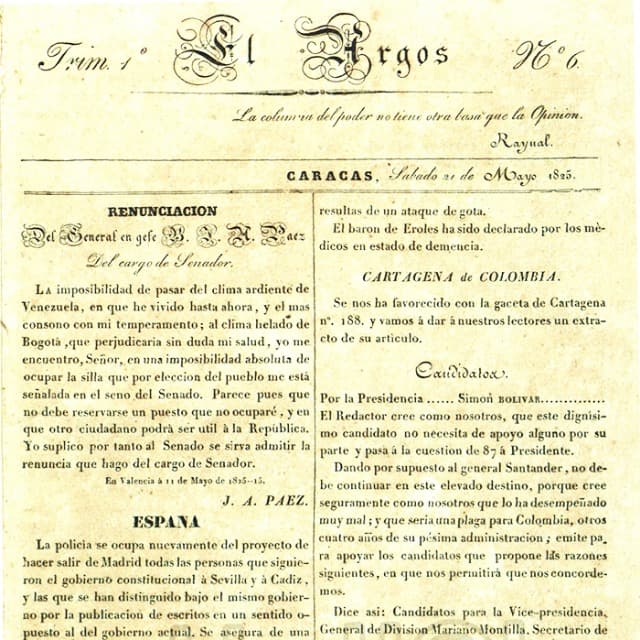 Trim. 1º El Argos Nº 6.
La columna del poder no tiene otra basa que la Opinion.
Raynal.
CARACAS, Sabado 21 de Mayo 1825.
RENUNCIACION
Del General en gefe
Paez
Del cargo de Senador.
LA imposibilidad de pasar del clima ardiente de
Venezuela, en que he vivido hasta ahora, y el mas
consono con mi temperamento; al clima helado de
Bogotá, que perjudicaria sin duda mi salud, yo me
encuentro, Señor, en una imposibilidad absoluta de
ocupar la silla que por eleccion del pueblo me está
señalada en el seno del Senado. Parece pues que
no debe reservarse un puesto que no ocuparé, y en
que otro ciudadano podrà ser util à la Repùblica.
Yo suplico por tanto al Senado se sirva admitir la
renuncia que hago del cargo de Senador.
En Valencia à 11 de Mayo de 1825-15.
J. A. PAEZ.
ESPANA
La policia se ocupa nuevamente del proyecto de
hacer salir de Madrid todas las personas que siguie-
ron el gobierno constitucional à Sevilla y à Cadiz,
y las que se han distinguido bajo el mismo gobier-
no por la publicacion de escritos en un sentido o-
puesto al del gobierno actual. Se asegura de una
resultas de un ataque de gota.
El baron de Eroles ha sido declarado por los mè-
dicos en estado de demencia.
CARTAGENA de COLOMBIA.
Se nos ha favorecido con la gaceta de Cartagena
nº. 188. y vamos à dar à nuestros lectores un extrac-
to de su articulo.
Candidatos.
Por la Presidencia ...... Simon BOLIVAR..............
El Redactor cree como nosotros, que este dignisi-
mo candidato no necesita de apoyo alguno por su
parte y pasa á la cuestion de 87 à Presidente.
Dando por supuesto al general Santander, no de-
be continuar en este elevado destino, porque cree
seguramente como nosotros que lo ha desempeñado
muy mal; y que seria una plaga para Colombia, otros
cuatro años de su pésima administracion; emite pa-
ra apoyar los candidatos que propone las razones
siguientes, en que nos permitirà que nos concorde-
mos.
Dice asi: Candidatos para la Vice-presidencia,
General de Division Mariano Montilla, Secretario de